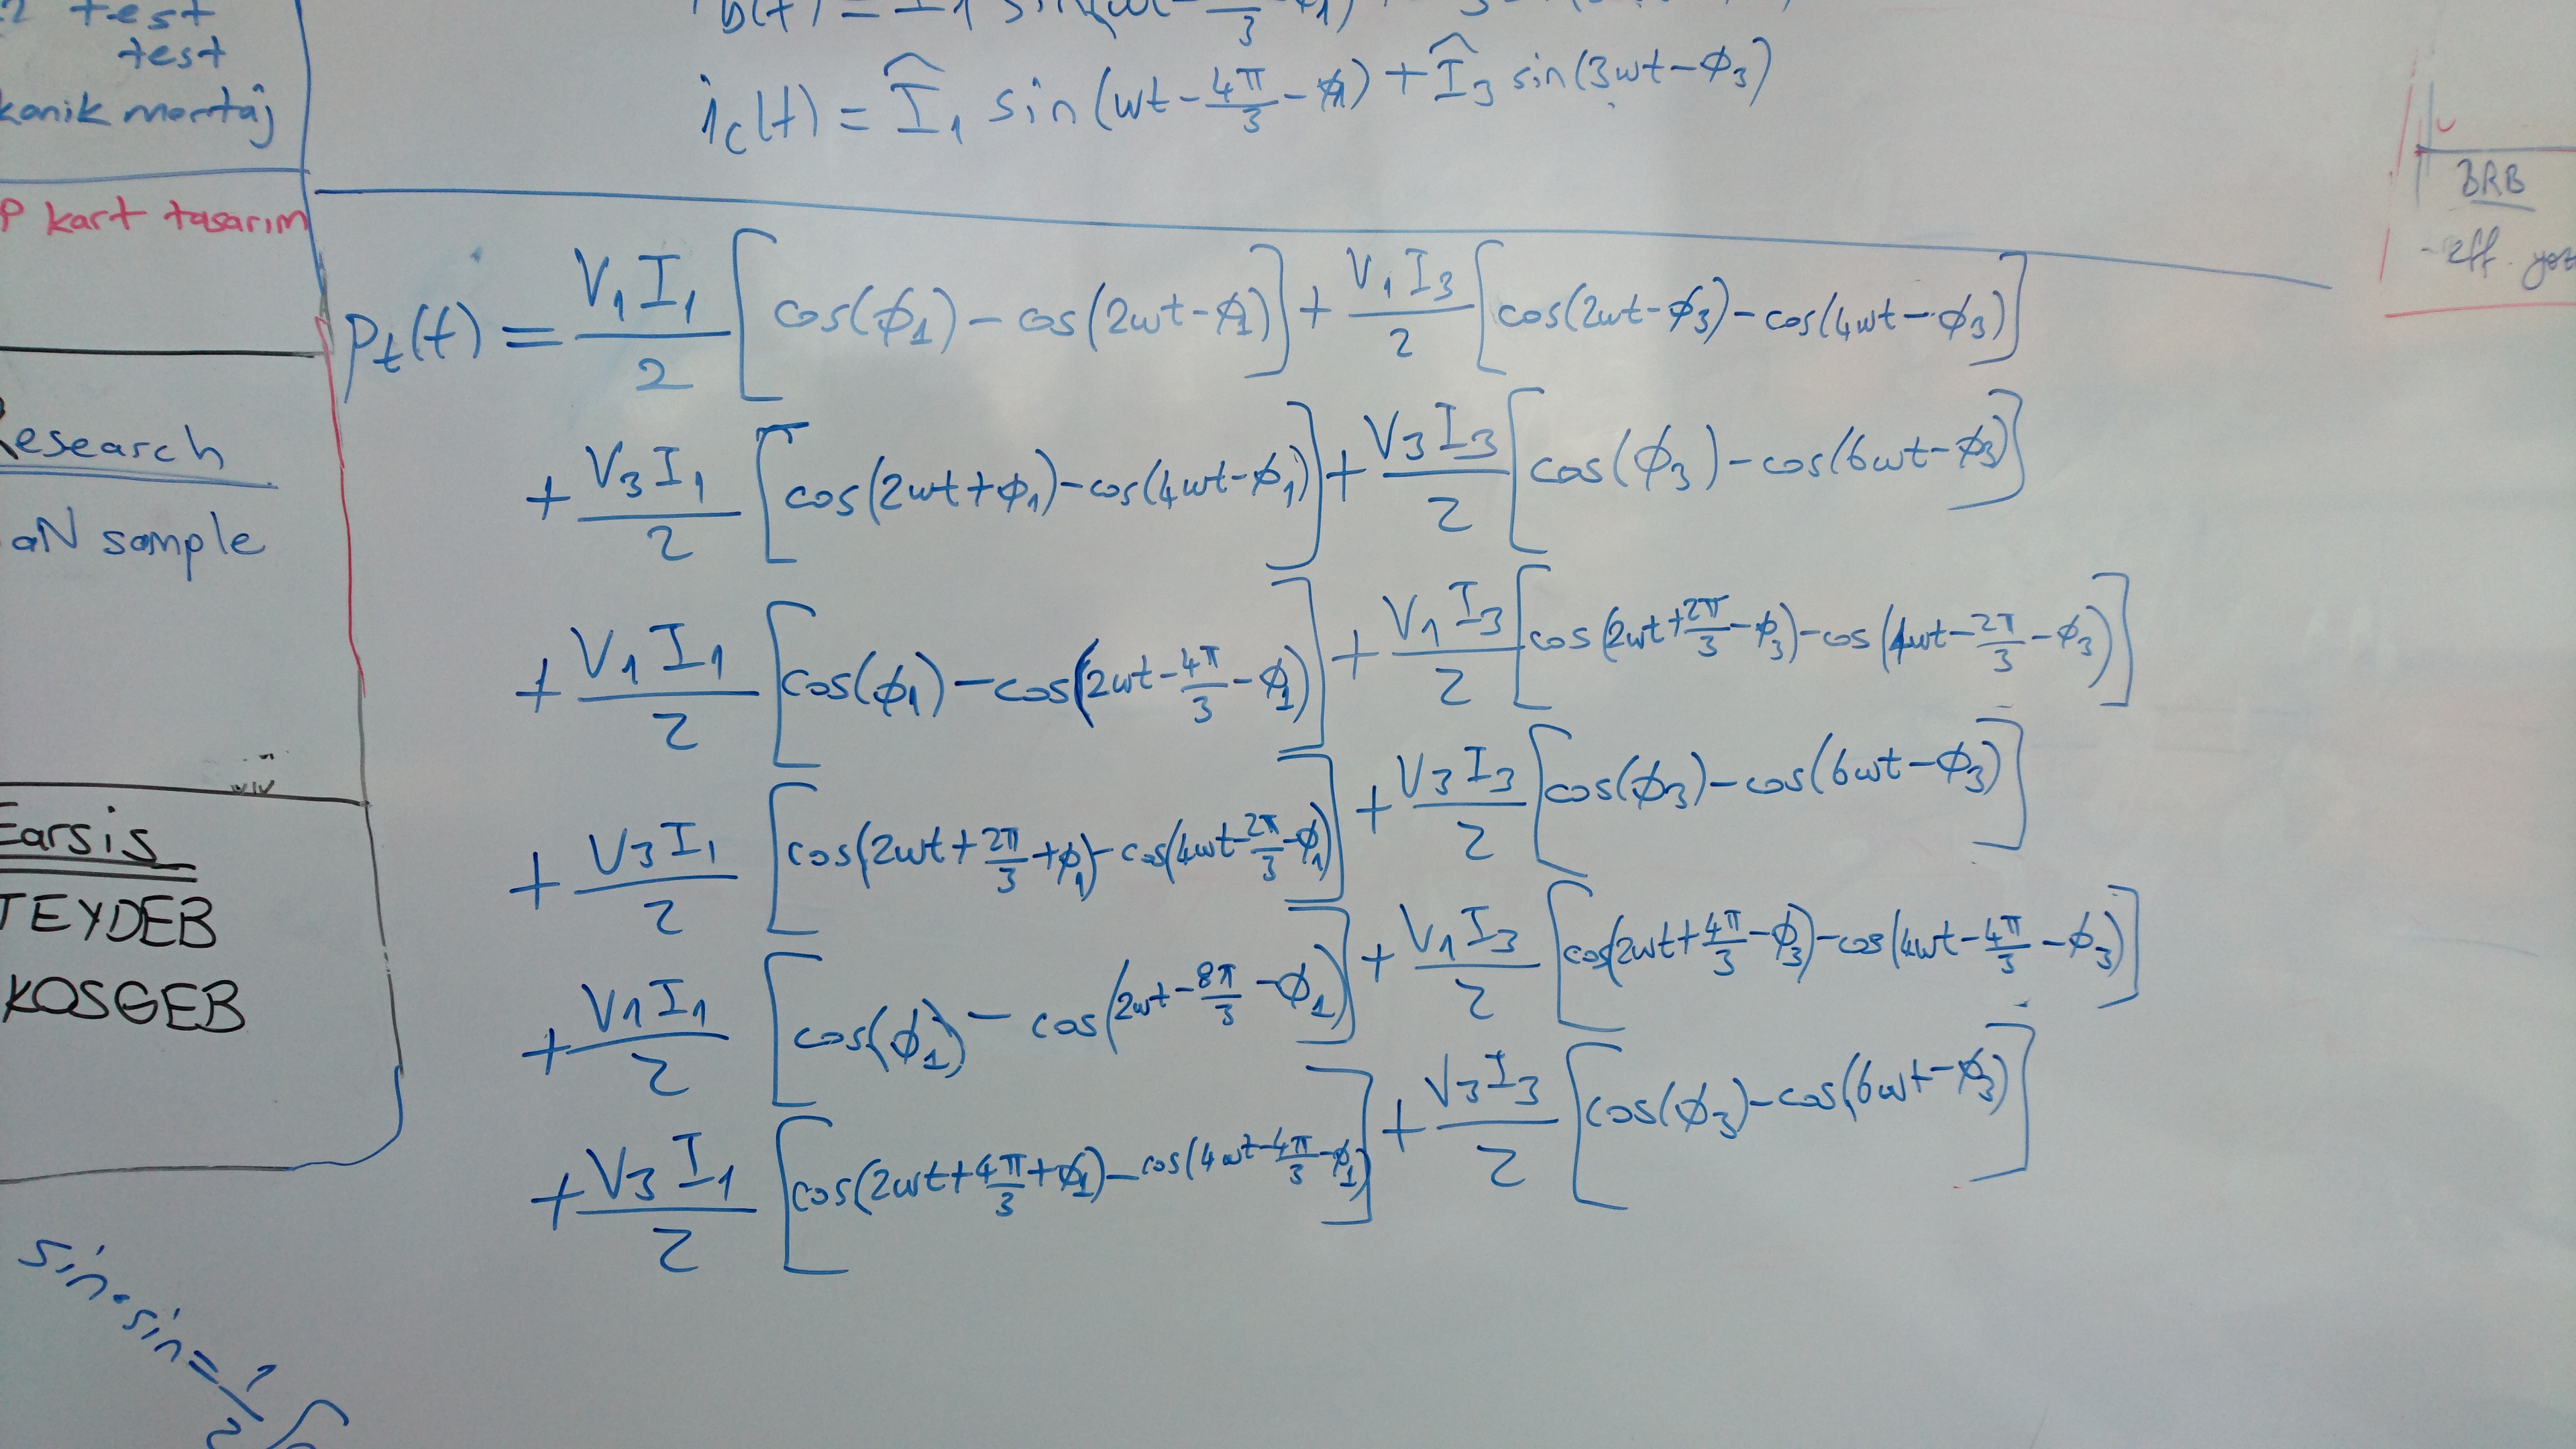 test
test
montaj
kart tasarım
Research
sample
Earsis
TEYDEB
KOSGEB
sin·sin = 1/2
i_c(t) = Î₁ sin(wt - 4π/3 - ϕ1) + Î₃ sin(3wt - ϕ₃)
P_t(t) = V₁I₁/2 [cos(ϕ₁) - cos(2wt - ϕ1)] + V₁I₃/2 [cos(2wt - ϕ₃) - cos(4wt - ϕ₃)]
+ V₃I₁/2 [cos(2wt + ϕ₁) - cos(4wt - ϕ₁)] + V₃I₃/2 [cos(ϕ₃) - cos(6wt - ϕ₃)]
+ V₁I₁/2 [cos(ϕ₁) - cos(2wt - 4π/3 - ϕ₁)] + V₁I₃/2 [cos(2wt + 2π/3 - ϕ₃) - cos(4wt - 2π/3 - ϕ₃)]
+ V₃I₁/2 [cos(2wt + 2π/3 + ϕ₁) - cos(4wt - 2π/3 - ϕ₁)] + V₃I₃/2 [cos(ϕ₃) - cos(6wt - ϕ₃)]
+ V₁I₁/2 [cos(ϕ₁) - cos(2wt - 8π/3 - ϕ₁)] + V₁I₃/2 [cos(2wt + 4π/3 - ϕ₃) - cos(4wt - 4π/3 - ϕ₃)]
+ V₃I₁/2 [cos(2wt + 4π/3 + ϕ₁) - cos(4wt - 4π/3 - ϕ₁)] + V₃I₃/2 [cos(ϕ₃) - cos(6wt - ϕ₃)]
BRB
- eff.